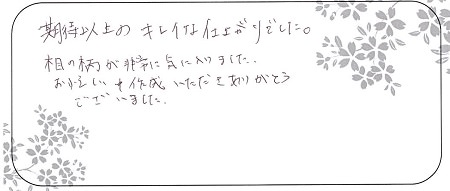 期待以上のキレイな仕上がりでした。
桐の柄が非常に気に入りました。
お忙しい中作成いただきありがとう
ございました。